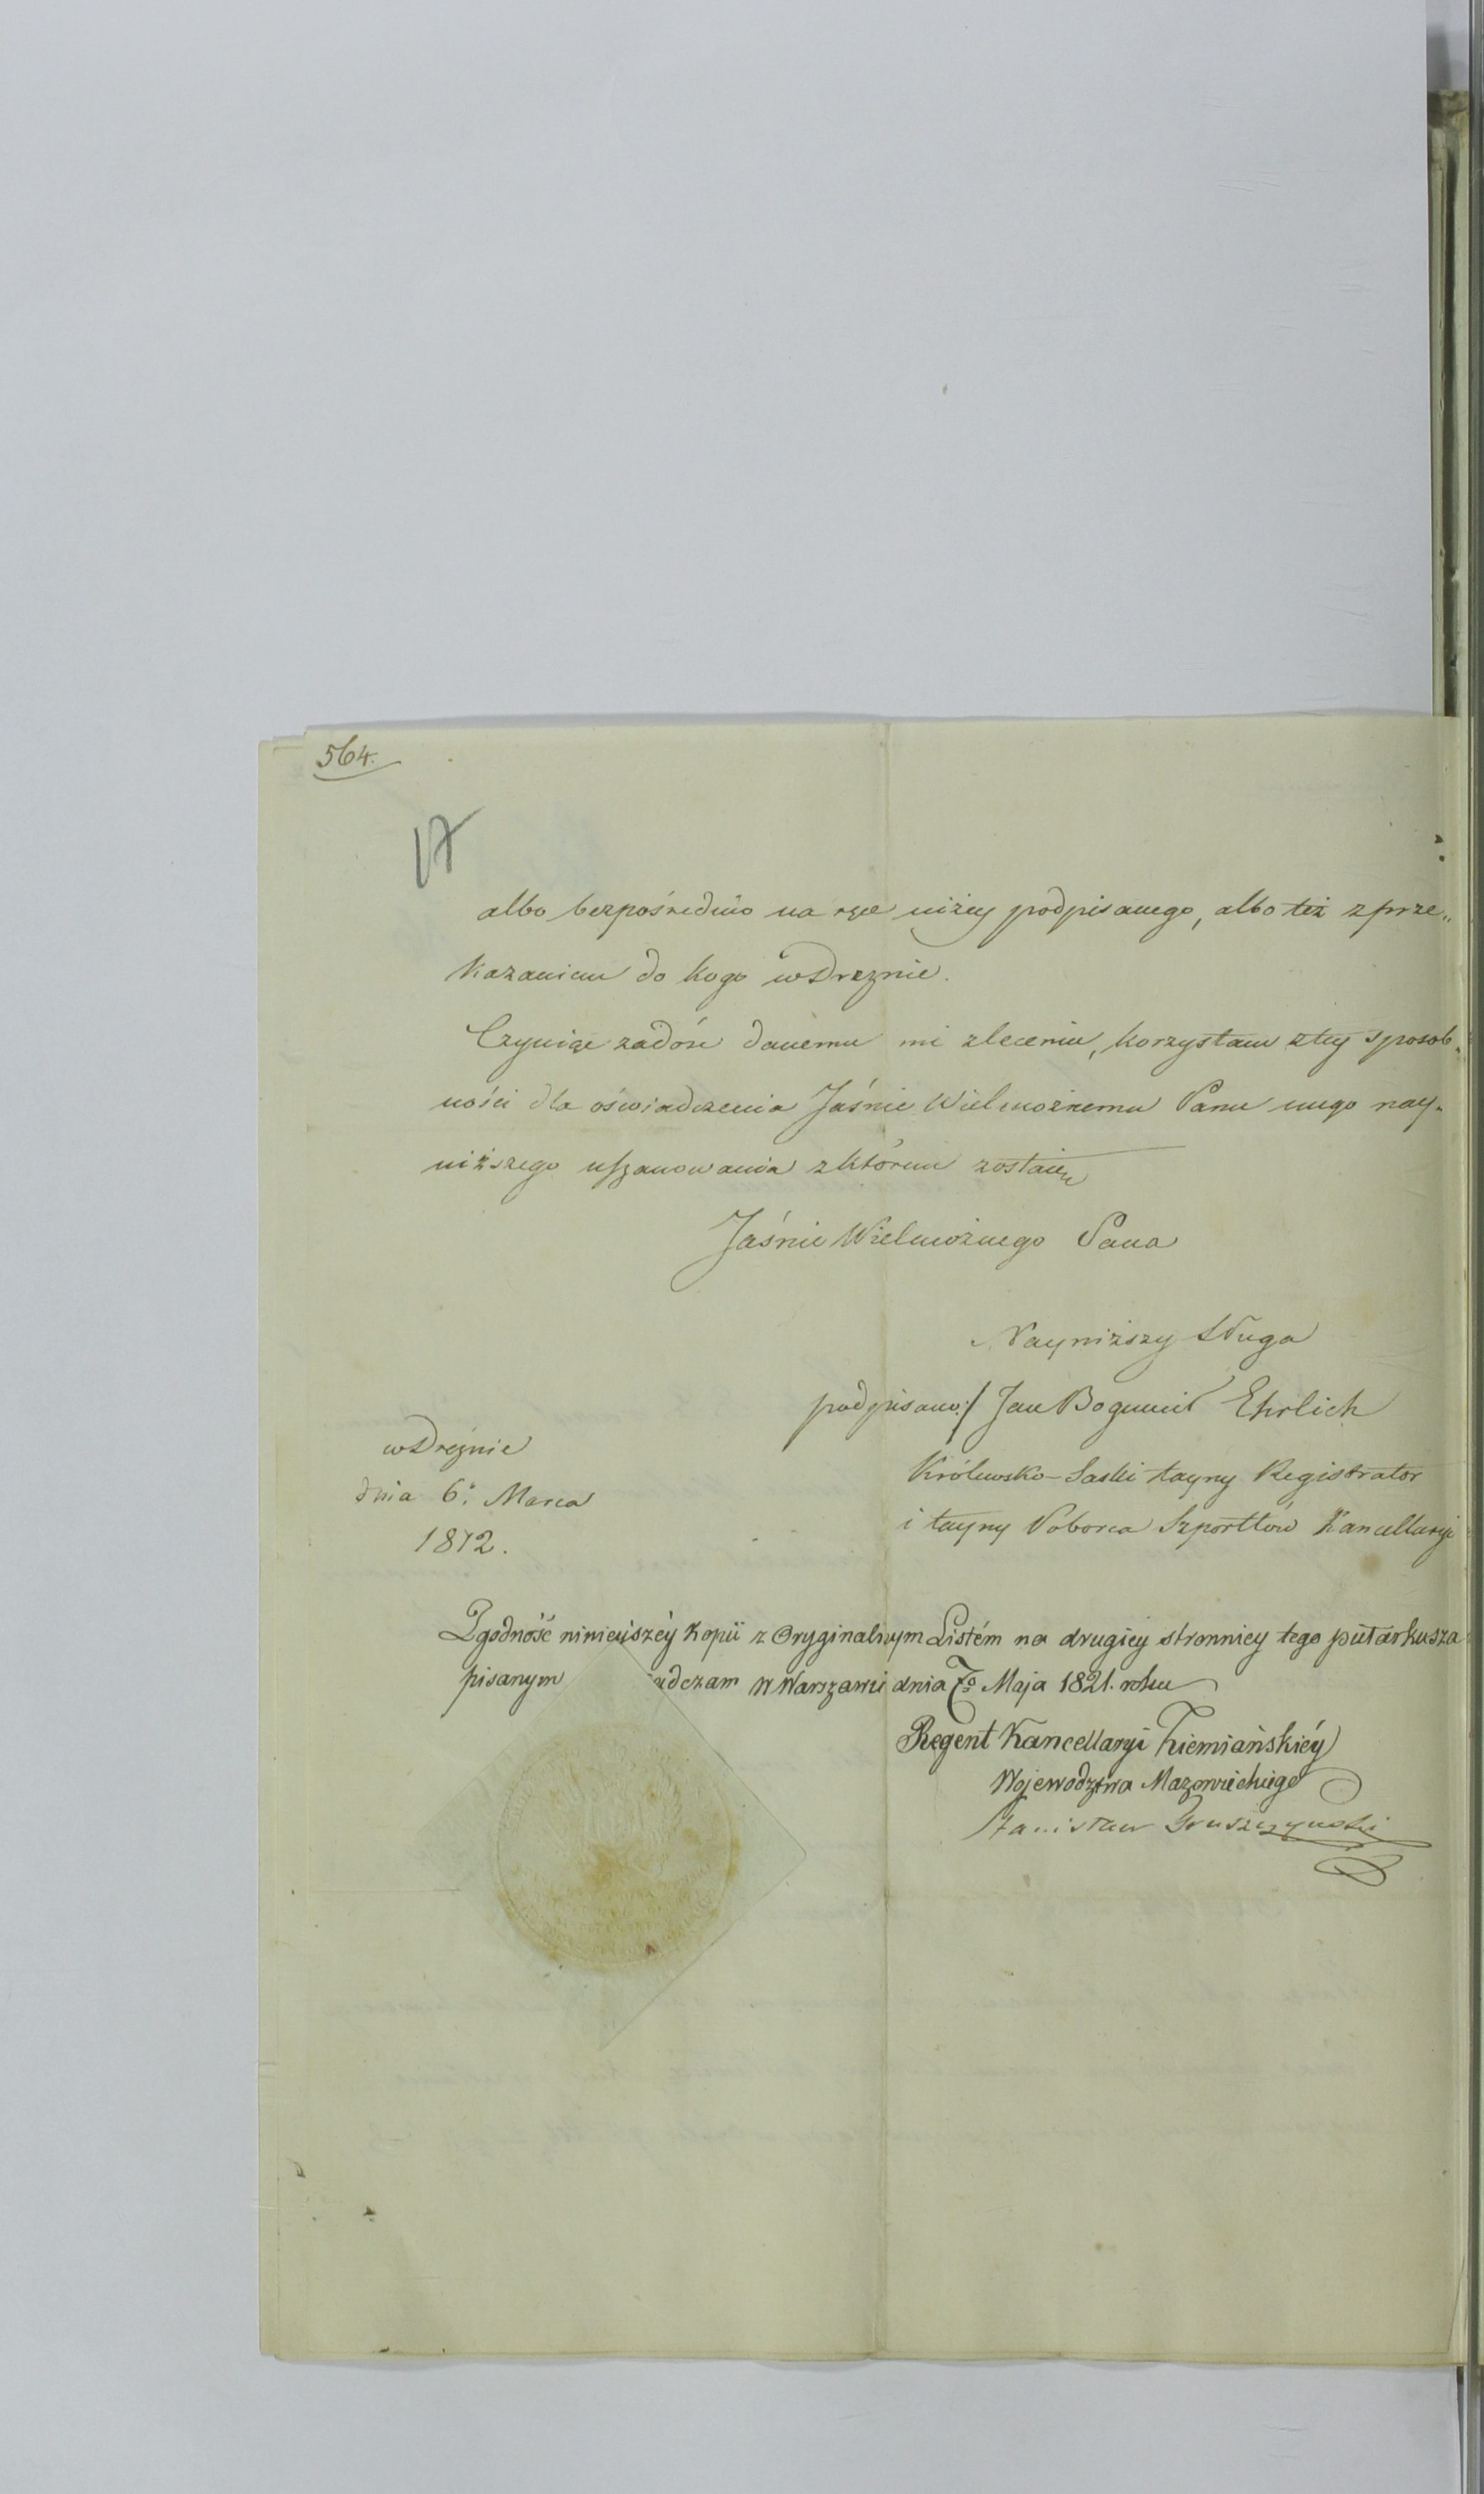 564.
17
albo bezpośrednio na ręce niżey podpisanego, albo też z prze„
kazaniem do kogo w Dreznie.
Czyniąc zadość danemu mi zleceniu, korzystam z tey sposob„
ności dla oświadczenia Jaśnie Wielmożnemu Panu mego nay„
niższego uszanowania z którem zostaiem
Jaśnie Wielmożnego Pana
Nayniższy Sługa
podpisano:/ Jan Bogumił Ehrlich
w Dreźnie
Królewsko-Saski tayny Registrator
dnia 6. Marca
i tayny Poborca Szportlów Kancellaryi
1812.
Zgodność ninieyszéy Kopii z Oryginalnym Listém na drugiey stronnicy tego pułarkusza
pisanym iadczam w Warszawie dnia 7º Maja 1821. roku
Regent Kancellaryi Ziemiańskiéy
Wojewodztwa Mazowieckiego
Stanisław Gruszczynski